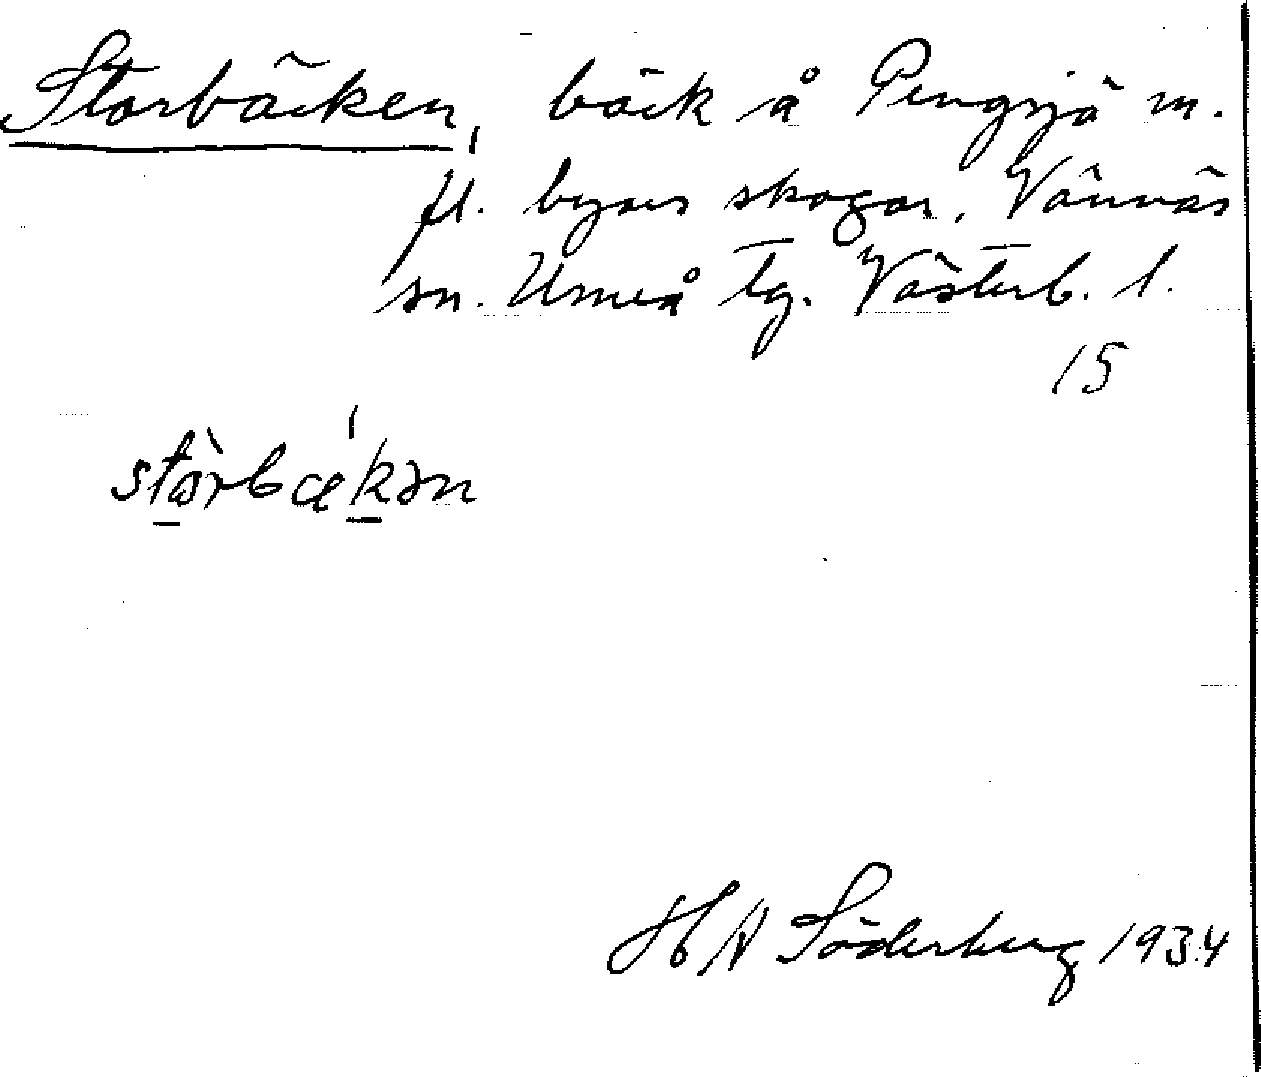 Storbäcken, bäck å Pengsjö m.
fl. byars skogar, Vännäs
sn. Umeå tg. Västerb. l.
15
stòrbǽkən
H A Söderberg 1934